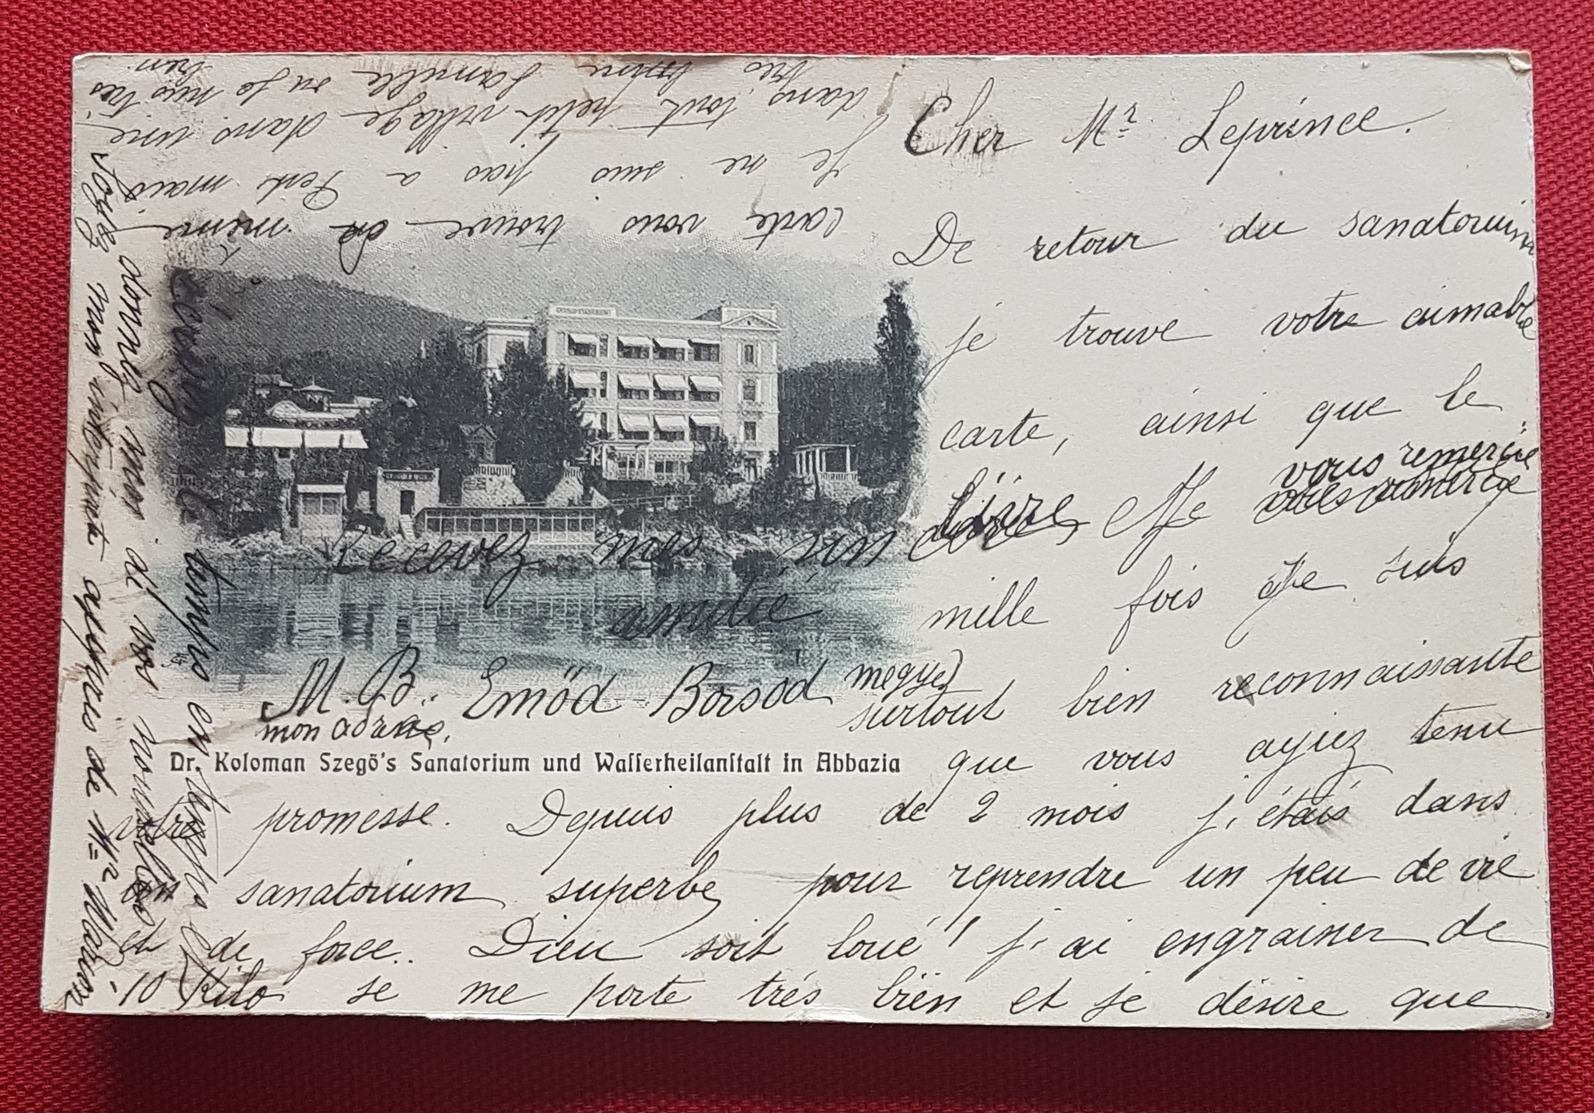 Cher Mr Leprince.
De retour du sanatorium
je trouve votre aimable
carte, ainsi que le
livre, Je vous remercie
mille fois Je suis
surtout bien reconnaissante
que vous ayiez tenu
votre promesse. Depuis plus de 2 mois j'étais dans
un sanatorium superbe pour reprendre un peu de vie
et de force. Dieu soit loué! j'ai engrainer de
10 Kilo se me porte trés bien et je désire que
carte vous trouve de même
Je ne suis pas a Pest mais
dans tout petit village dans une
très bonne famille ou je suis très
bien
Ecrivez de temps en temps et
donnez moi de vos nouvelles
Recevez mes
amitié
M. B. Emöd Borsod megye
mon adres,
Dr. Koloman Szegö's Sanatorium und Wasserheilanstalt in Abbazia